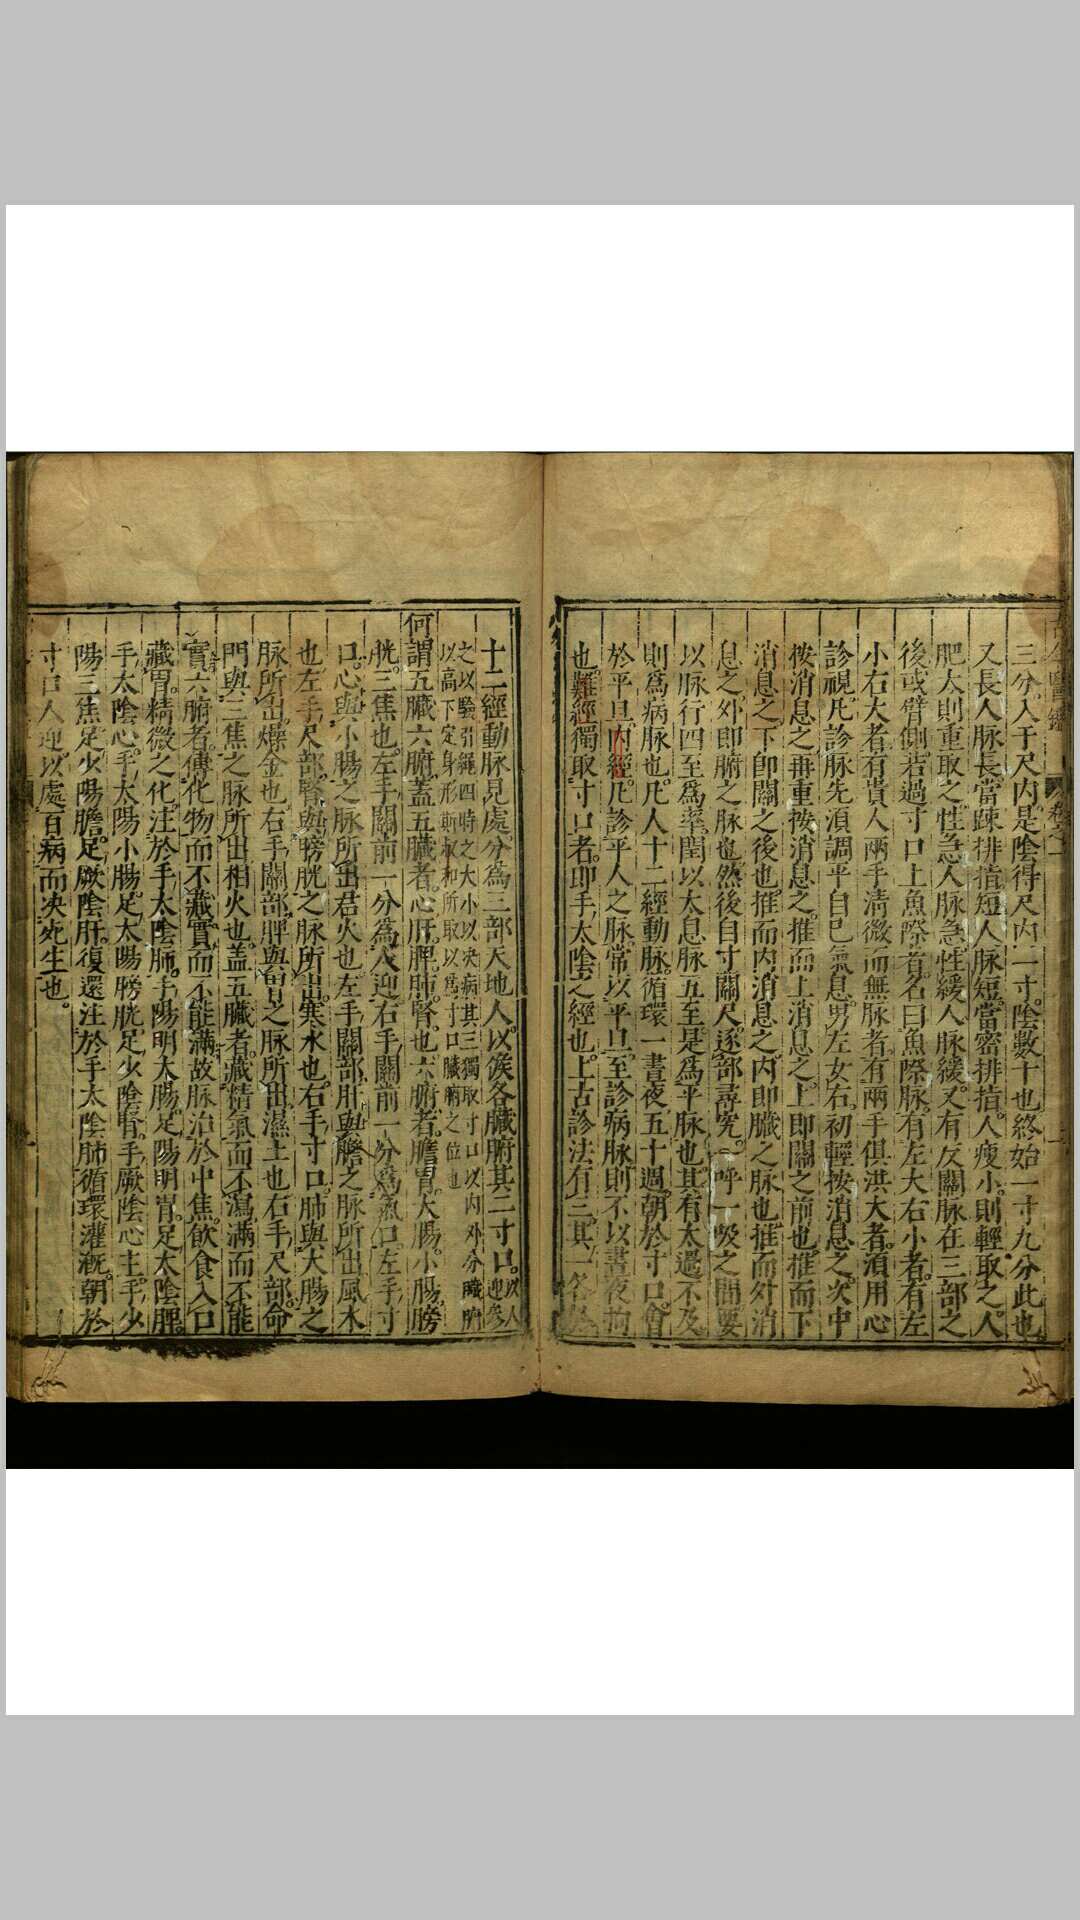 三分入于尺内是陰得尺内一寸陰數十也終始一寸九分此也
又長人脉長當疎排指短人脉短當密排指人瘦小則輕取之人
肥大則重取之性急人脉急性緩人脉緩又有反關脉在三部之
後或臂側若過寸口上魚際者名曰魚際脉有左大右小者有左
小右大者有貴人兩手清微而無脉者有兩手俱洪大者須用心
診視凡診脉先須調平自已氣息男左女右初輕按消息之次中
按消息之再重按消息之推而上消息之上即關之前也推而下
消息之下即關之後也推而内消息之内即臟之脉也推而外消
息之外即腑之脉也然後自寸關尺逐部尋究一呼一吸之間要
以脉行四至爲率閏以太息脉五至是爲平脉也其有太過不及
則爲病脉也凡人十二經動脉循環一晝夜五十週朝於寸口會
於平旦内經凡診平人之脉常以平旦至診病脉則不以晝夜拘
也難經獨取寸口者即手太陰之經也上古診法有三其一各於
十二經動脉見處分爲三部天地人以候各臟腑其二寸口以人迎參
之以驗引繩四時之大小以决病其三獨取寸口以内外分臟腑
以高下定身形斯叔和所取以爲寸口臟腑之位也
何謂五臟六腑蓋五臟者心肝脾肺腎也六腑者膽胃大腸小腸膀
胱三焦也左手關前一分爲人迎右手關前一分爲氣口左手寸
口心與小腸之脉所出君火也左手關部肝與膽之脉所出風木
也左手尺部腎與膀胱之脉所出寒水也右手寸口肺與大腸之
脉所出燥金也右手關部脾與胃之脉所出濕土也右手尺部命
門與三焦之脉所出相火也蓋五臟者藏精氣而不瀉滿而不能
實六腑者傳化物而不藏實而不能滿故脉治於中焦飲食入口
藏胃精微之化注於手太陰肺手陽明大腸足陽明胃足太陰脾
手太陰心手太陽小腸足太陽膀胱足少陰腎手厥陰心主手少
陽三焦足火陽膽足厥陰肝復還注於手太陰肺循環灌漑朝於
寸口人迎以處百病而决死生也